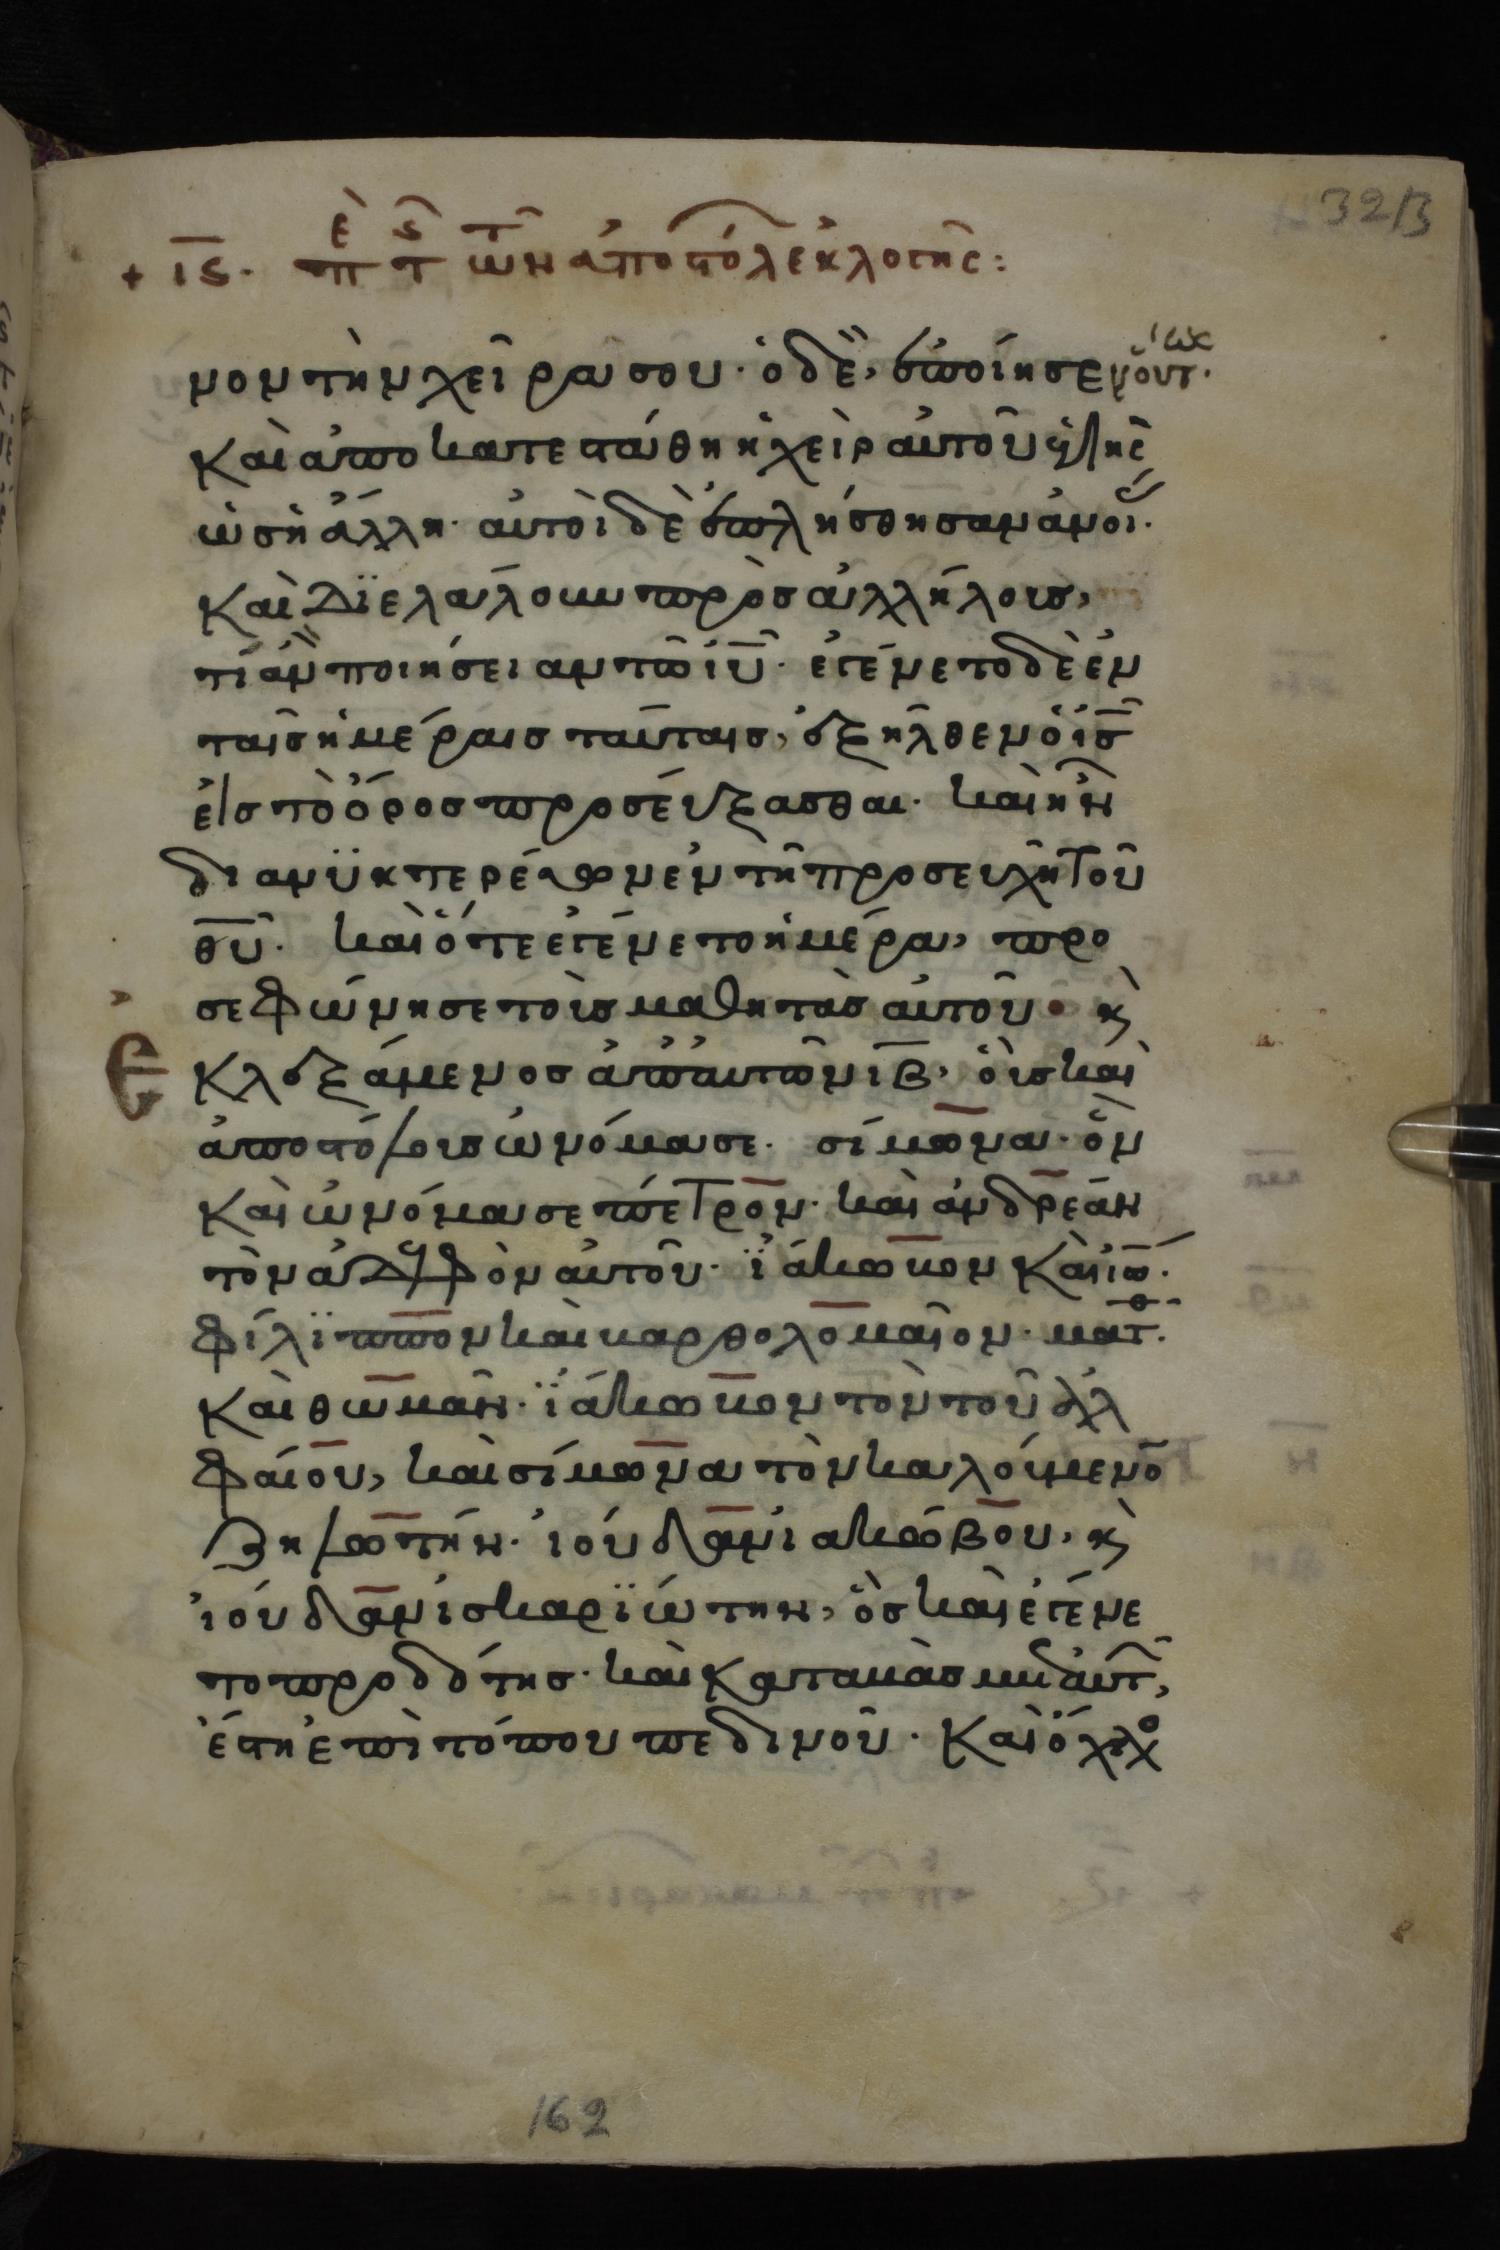 323
+ ις· περὶ τῆς τῶν ἀποστόλ ἐκλογῆς:
νον τὴν χεῖρα σου· ὁ δὲ, ἐποίησεν οὕτως·
καὶ ἀποκατεστάθη ἡ χεὶρ αὐτοῦ ὑγιὴς
ὡς ἡ ἄλλη· αὐτοὶ δὲ ἐπλήσθησαν ἀνοί.
καὶ διελάλουν πρὸς ἀλλήλους,
τί ἂν ποιήσειαν τῶ ἰῦ· ἐγένετο δὲ ἐν
ταῖς ἡμέραις ταύταις, ἐξῆλθεν ὁ ἰς
εἰς τὸ ὄρος προσεύξασθαι· καὶ ἦν
διανϋκτερεύων ἐν τῆ προσευχῆ τοῦ
θυ· καὶ ὅτε ἐγένετο ἡμέρα, προ
σεφώνησε τοὺς μαθητὰς αὐτοῦ· κὶ
ἐκλεξάμενος ἀπ' αὐτῶν ιβ, οὓς καὶ
ἀποστόλους ὠνόμασε· σίμωνα· ὃν
καὶ ὠνόμασε πέτρον· καὶ ἀνδρέαν
τὸν ἀδελφὸν αὐτοῦ· ϊάκωβον καὶ ἰω·
φίλϊππον καὶ βαρθολομαῖον· ματθ·
καὶ θωμᾶν· ϊάκωβον τὸν τοῦ ἀλ
φαίου, καὶ σίμωνα τὸν καλούμενο
ζηλωτήν· ἰούδαν ἰακώβου, κὶ
ἰούδαν ἰσκαρϊώτην, ὃς καὶ ἐγένε
το προδότης· καὶ καταβὰς μετ' αὐτ,
ἔστη ἐπὶ τόπου πεδινοῦ· καὶ ὄχλος
162